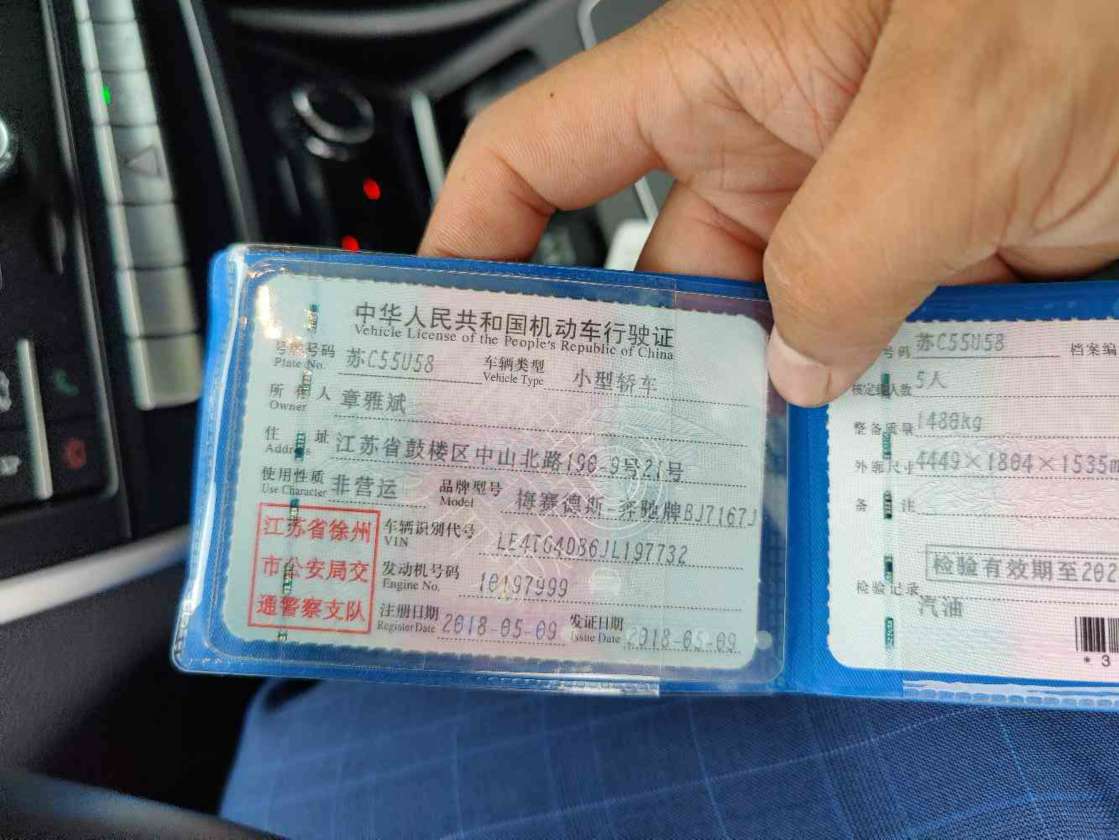 中华人民共和国机动车行驶证
Vehicle License of the People's Republic of China
号牌号码 苏C55U58 车辆类型 小型轿车
Plate No. Vehicle Type
所有人 章雅斌
Owner
住址 江苏省鼓楼区中山北路190-9号21号
Address
使用性质 非营运 品牌型号 梅赛德斯-奔驰牌BJ7167J
Use Character Model
江苏省徐州
市公安局交
通警察支队
车辆识别代号 LE4TG4DB6JL197732
VIN
发动机号码 10197999
Engine No.
注册日期 2018-05-09 发证日期 2018-05-09
Register Date Issue Date
号码 苏C55U58 档案编
核定载人数 5人
整备质量 1480kg
外廓尺寸 4449×1804×1535m
备注
检验有效期至202
检验记录
汽油
*3